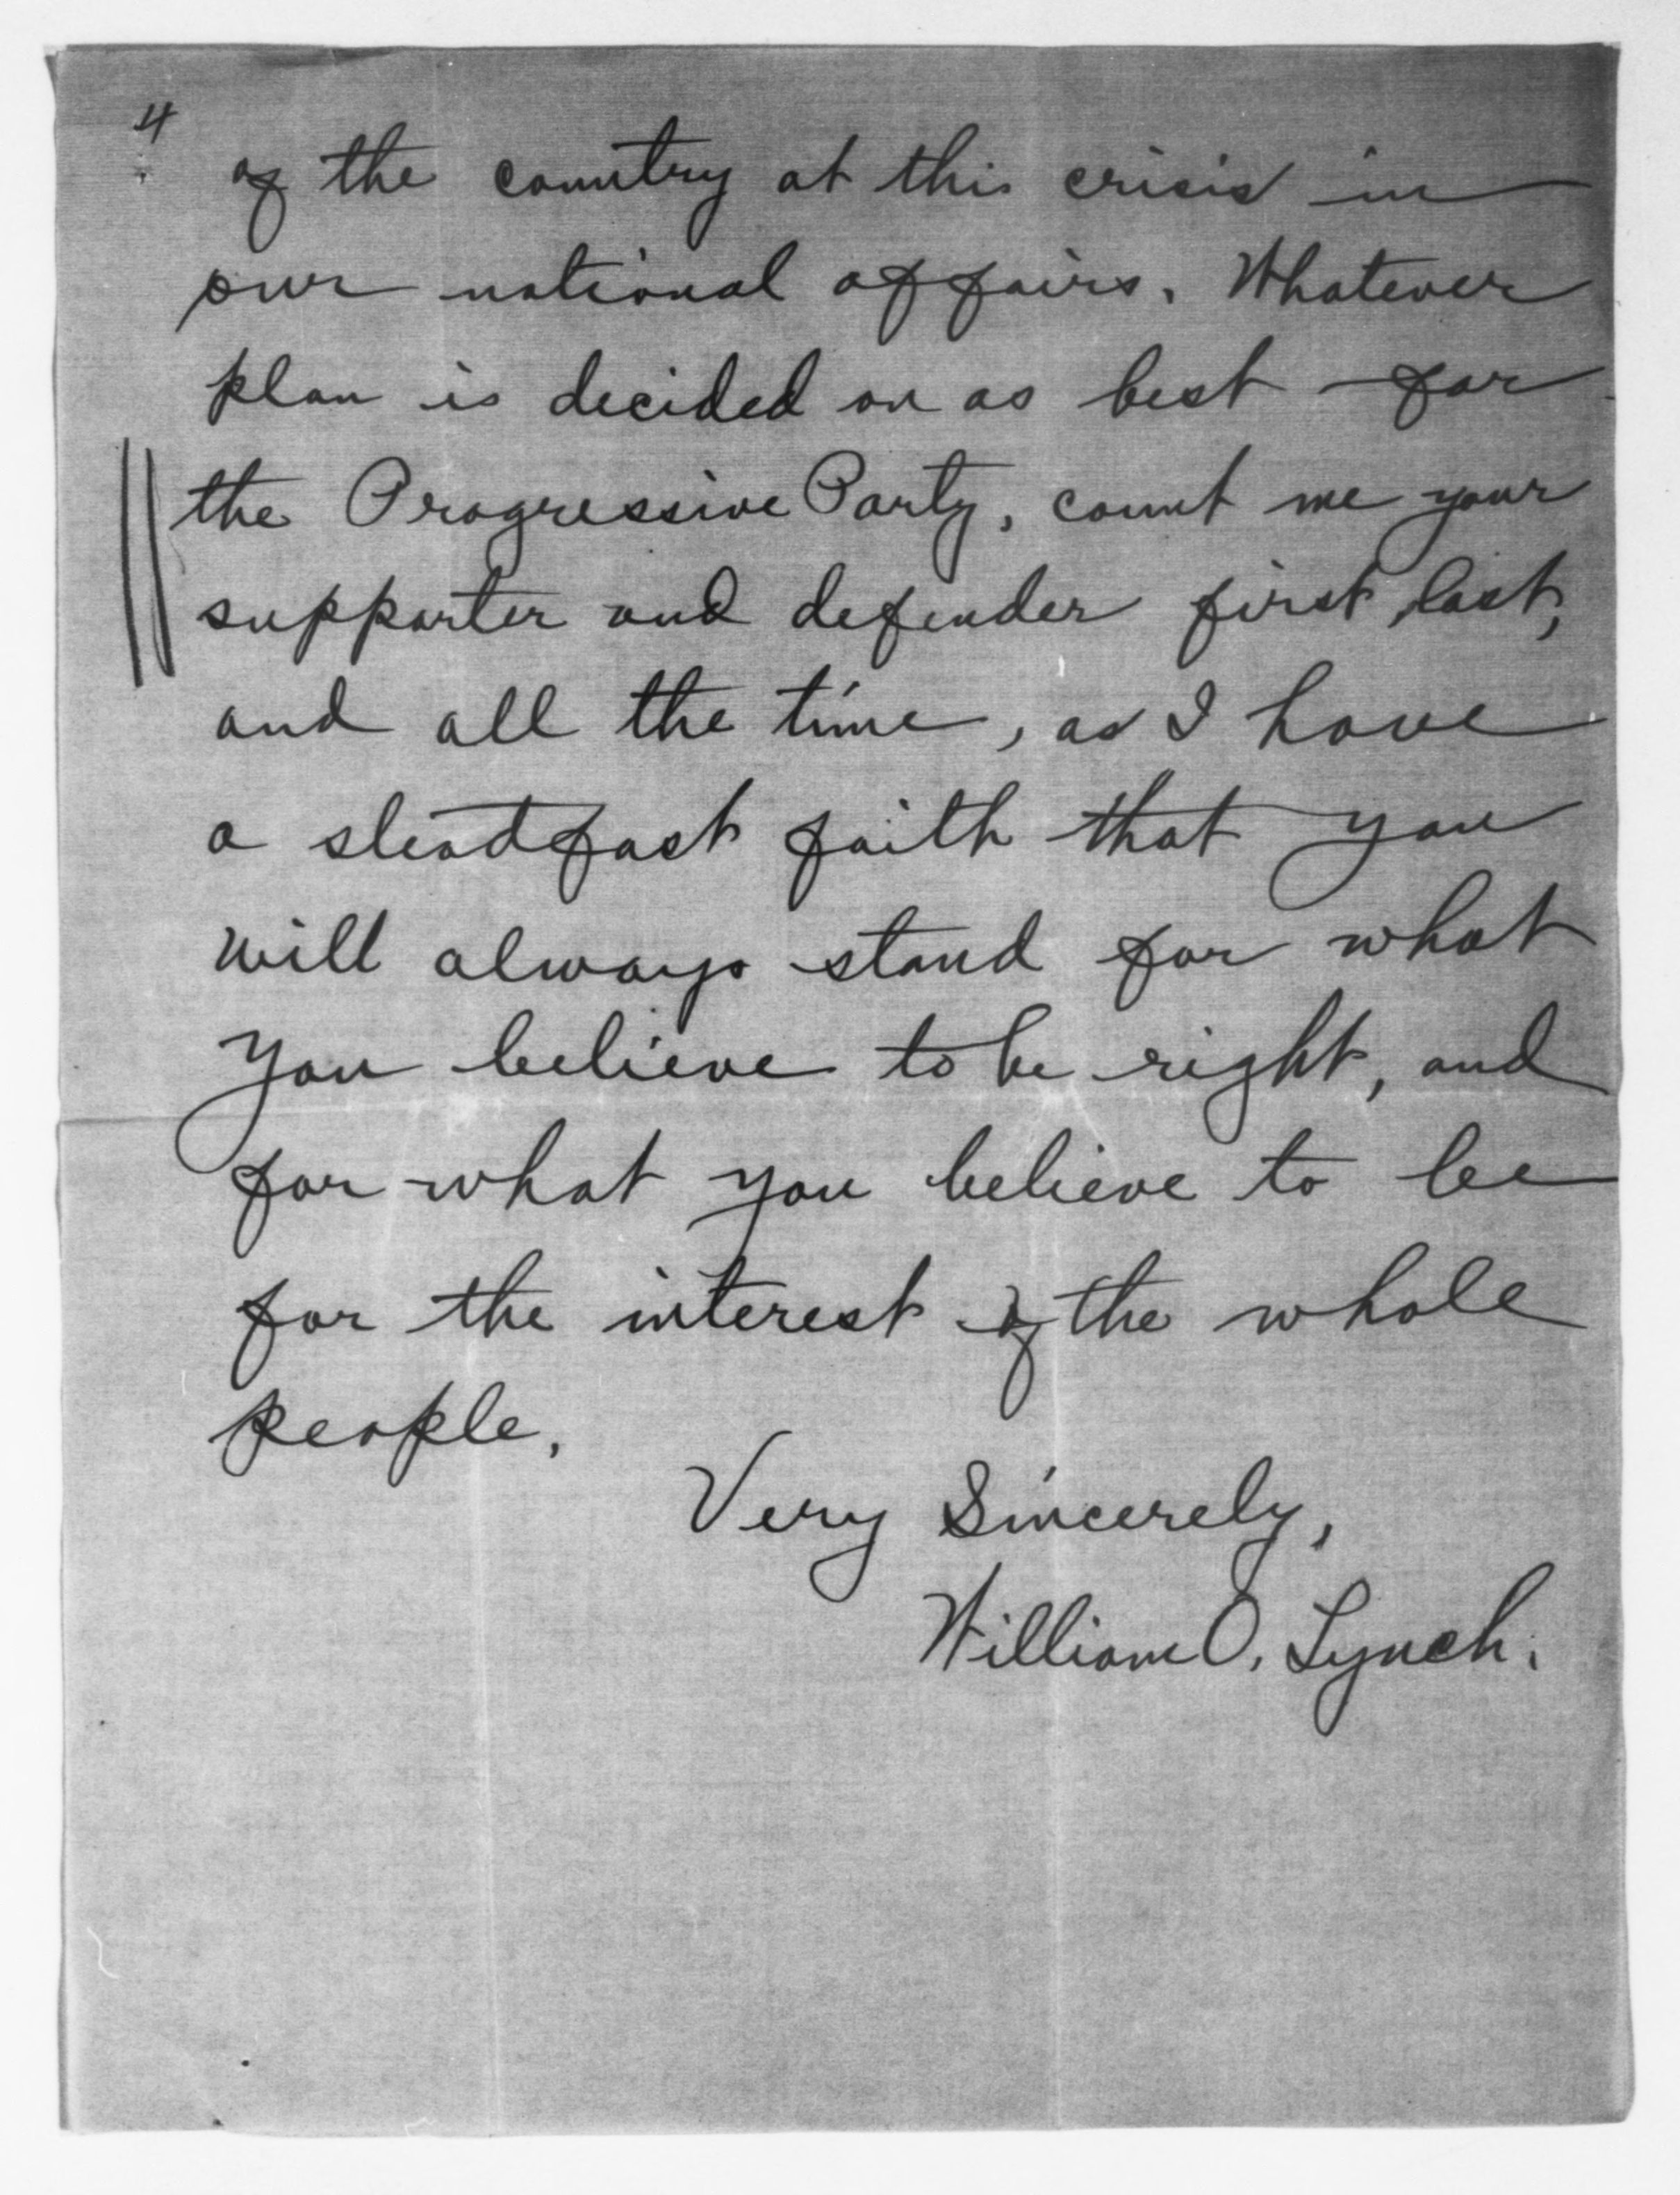 4
of the country at this crisis in
our national affairs. Whatever
plan is decided on as best for
the Progressive Party, count me your
supporter and defender first, last,
and all the time, as I have
a steadfast faith that you
will always stand for what
you believe to be right, and
for what you believe to be
for the interest of the whole
people.
Very Sincerely,
William O. Lynch.